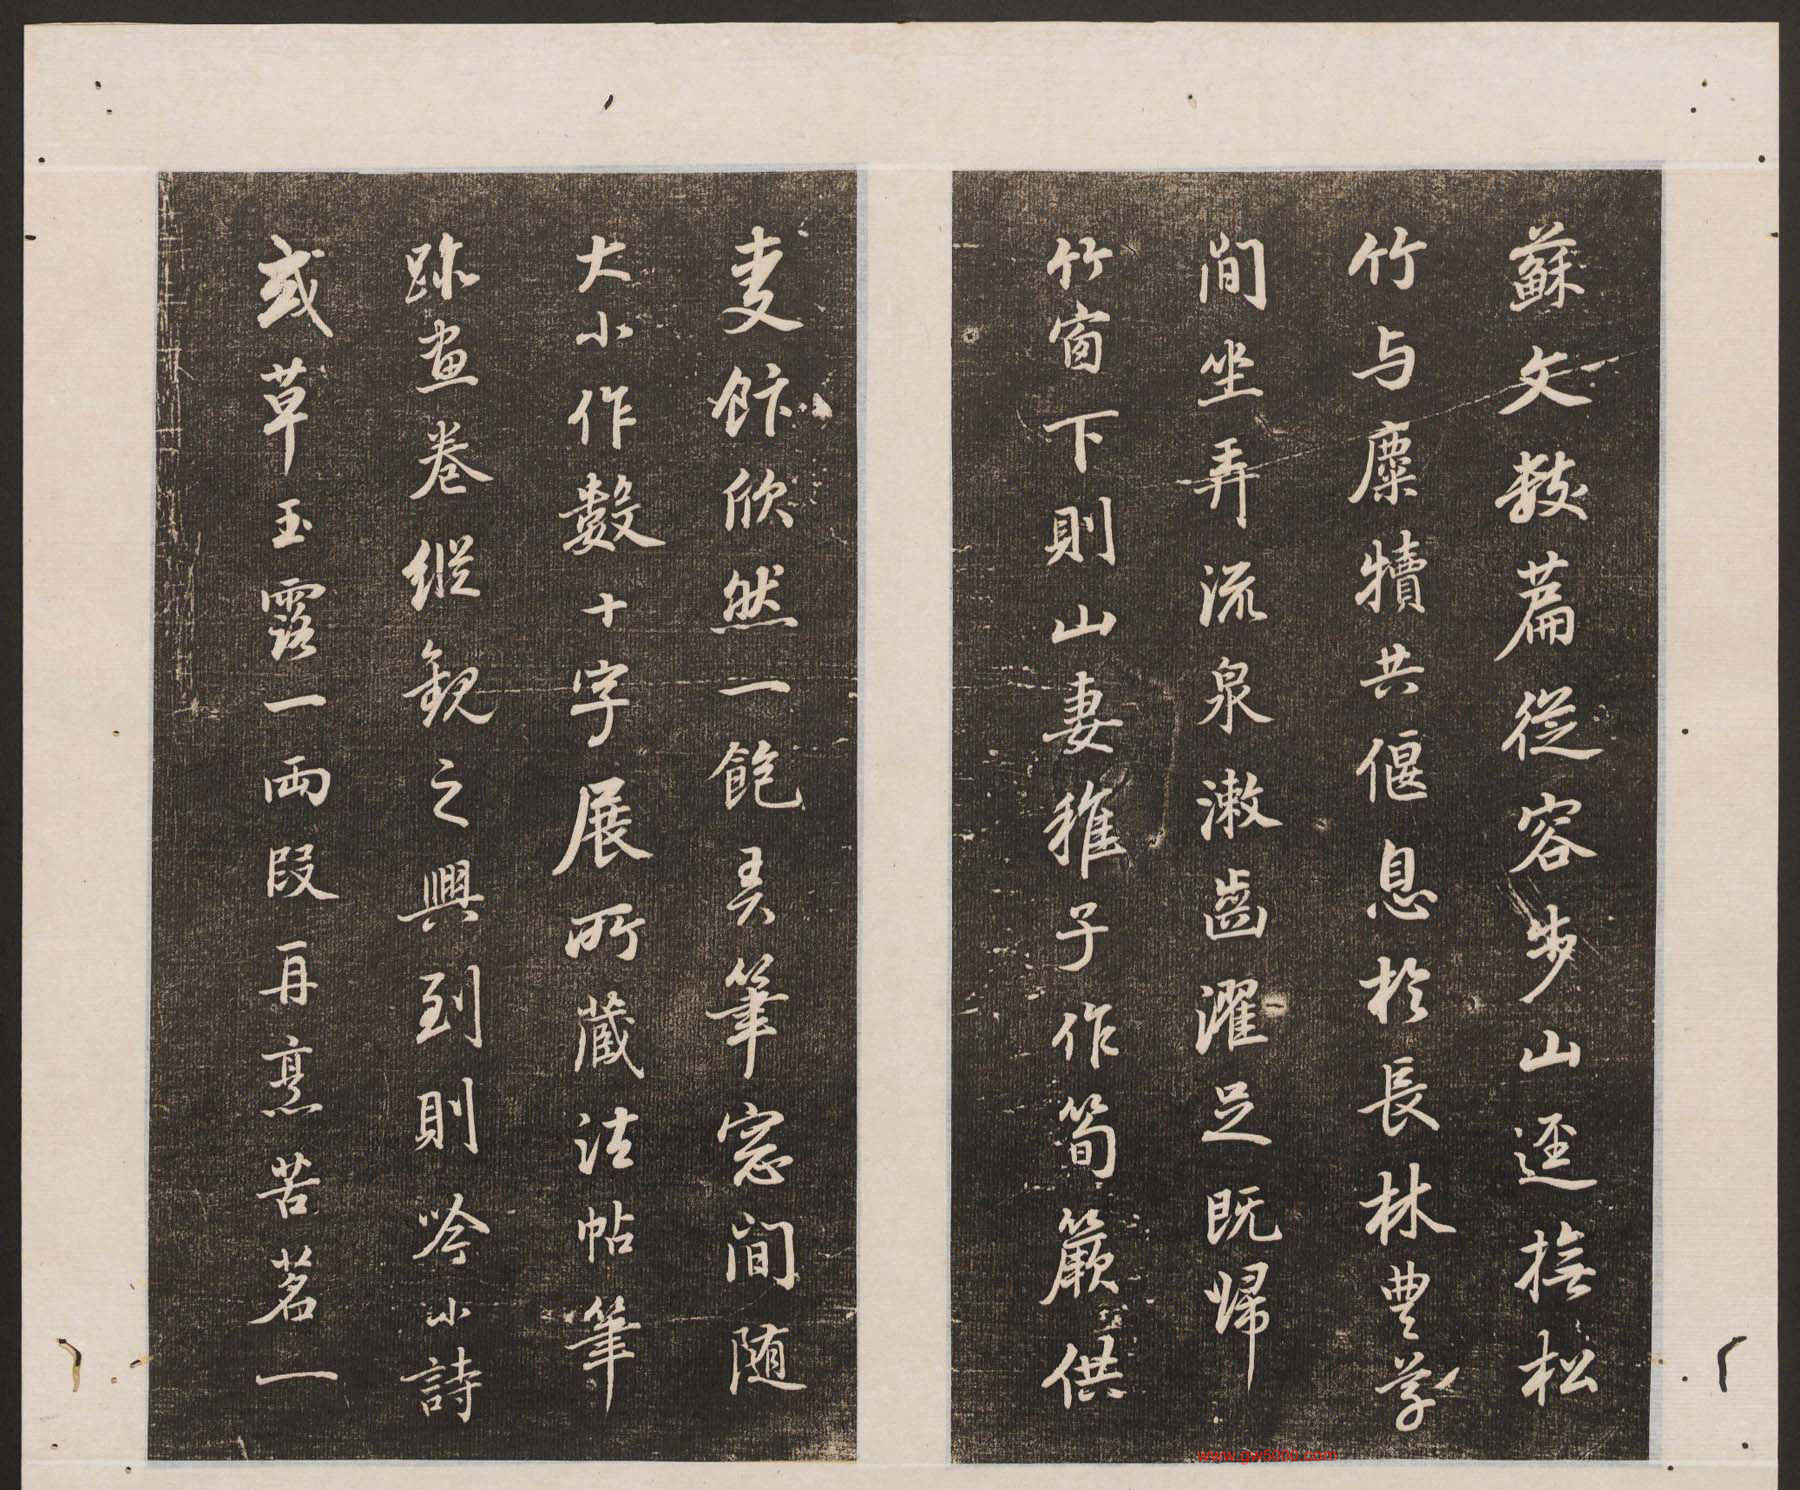 蘇文數篇從容步山逕撫松
竹与麋犢共偃息於長林豊草
間坐弄流泉漱齒濯足既歸
竹窗下則山妻稚子作筍蕨供
麦飰欣然一飽弄筆窓間随
大小作數十字展所藏法帖筆
跡畫卷縱觀之興到則吟小詩
或草玉露一兩段再烹苦茗一